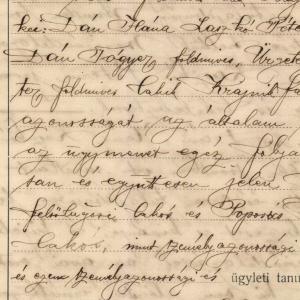 kei: Dán Flóra Laszkó Péte
Dán György földmives,
tez földmives lakik Krajnik fa
azonosságát az általam
az ügymenet egész folya
san és együttesen jelen
felsőlugosi lakós és Poposics
lakós, mint személyazonossági
és ezen személyazonossági és
ügyleti tanu